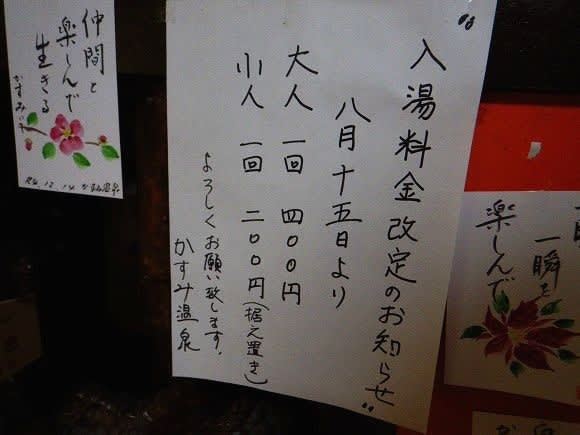 入湯料金改定のお知らせ
八月十五日より
大人 一回 四〇〇円
小人 一回 二〇〇円(据え置き)
よろしくお願い致します。
かすみ温泉
仲間と
楽しんで
生きる
一瞬を
楽しんで